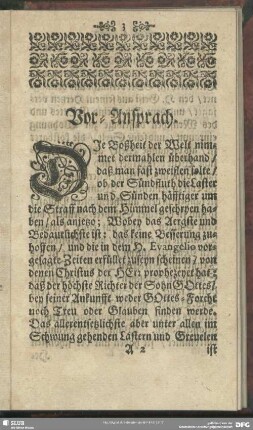 3
Vor-Ansprach.
DIe Boßheit der Welt nim-
met dermahlen überhand /
daß man fast zweiflen solte /
ob der Sündfluth die Laster
und Sünden häfftiger um
die Straff nach dem Himmel geschryen ha-
ben / als anjetzo: Wobey das Aergste und
Bedaurlichste ist: daß keine Besserung zu-
hoffen / und die in dem H. Evangelio vor-
gesagte Zeiten erfüllet zuseyn scheinen / von
denen Christus der HErr prophezeyet hat /
daß der höchste Richter der Sohn GOttes /
bey seiner Ankunfft weder GOttes-Forcht
noch Treu oder Glauben finden werde.
Das allerentsetzlichste aber unter allen im
Schwang gehenden Lastern und Greuelen
A 2 ist
SLUB
DFG